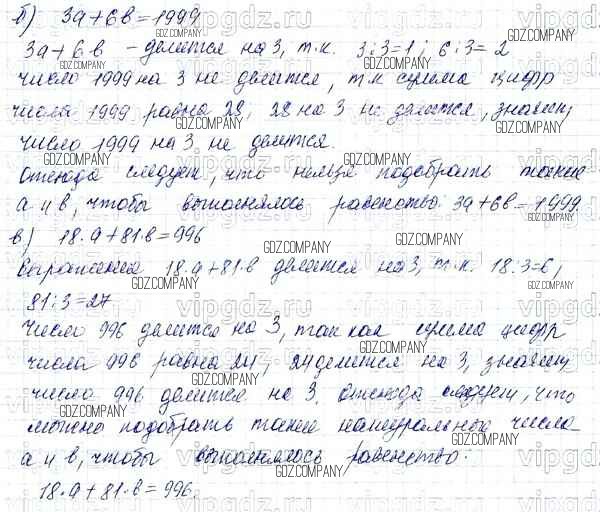 б) 3а+6в=1999
3а+6·в – делится на 3, т.к. 3:3=1; 6:3=2
число 1999 на 3 не делится, т.к сумма цифр
числа 1999 равна 28, 28 на 3 не делится, значит,
число 1999 на 3 не делится.
Отсюда следует, что нельзя подобрать такие
а и в, чтобы выполнялось равенство: 3а+6в=1999
в) 18·а+81·в=996
Выражение 18·а+81·в делится на 3, т.к. 18:3=6,
81:3=27
Число 996 делится на 3, так как сумма цифр
числа 996 равна 24, 24 делится на 3, значит,
число 996 делится на 3. Отсюда следует, что
можно подобрать такие натуральные числа
а и в, чтобы выполнялось равенство:
18·а+81·в=996.
vipgdz.ru
GDZ.COMPANY